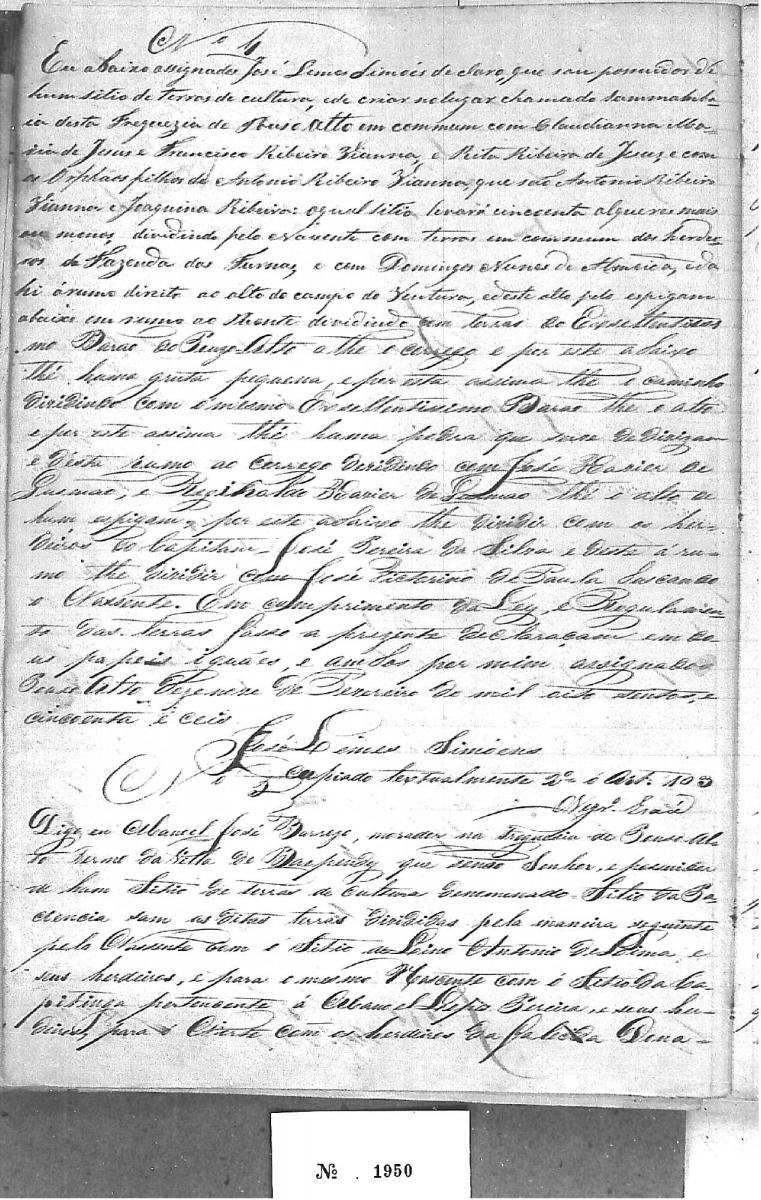 Nº 4
Eu abaixo assignado José Lemes Simoẽs declaro, que sou possuidor de
hum sitio de terras de cultura, e de criar no lugar chamado Sammamba
ia desta Freguezia de Pouso Alto em commum com Claudianna Ma
ria de Jesus e Francisco Ribeiro Vianna, e Rita Ribeiro de Jesuz e com
os Orphãos filhos de Antonio Ribeiro Vianna, que são Antonio Ribeiro
Vianna e Joaquina Ribeiro: o qual sitio levará cincoenta alqueres mais
ou menos, dividindo pelo Naxente com terras em commum dos herde
ros da Fazenda das Furnaz e com Domingos Nunes de Almeida, e da
hi á rumo direito ao alto do campo do Ventura, e deste alto pelo espigam
abaixo em rumo ao Monte dividindo com terras do Excellentissi
mo Barão de Pouzo Alto athe o corrego e por este abaixo
thé huma gruta pequena, e por esta assima thé o caminho
dividindo com o mesmo Excellentissimo Barão thé o alto
e por este assima thé huma pedra que serve de divizam
e desta rumo ao corrego dividindo com José Xavier de
Gusmão, e Reginaldo Xavier de Gusmão thé o alto de
hum espigam, por este abaixo thé dividir com os her-
deiros do Capitam José Pereira da Silva e deste á ru-
mo thé dividir com José Victorino de Paula buscando
o Naxsente. Em cumprimento da Ley, e Regulamen-
to das terras fasso a prezente declaraçam em do
us papeis iguáes, e ambos por mim assignados
Pouso Alto dezenove de Fevereiro de mil oito sentos, e
cincoenta e ceis
José Lemes Simóens
Nº 5 Copiado textualmente 2º o Art. 103
Digo eu Manoel José Barrozo, morador na freguesia de Pouso Al
to Termo da Villa de Baependy que sendo Senhor, e possuidor
de hum Sitio de terras de Cultura denominado Sitio da Pa
ciencia sam as ditas terras divididas pela maneira seguinte
pelo Nassente com o Sitio de Antonio de Lima, e
seus herdeiros, e para o mesmo Nascente com o Sitio da Ca
pitinga pertencente á Manoel Pereira, e seus her-
deiros, para o com os herdeiros da falecida Dona-
Nº . 1950